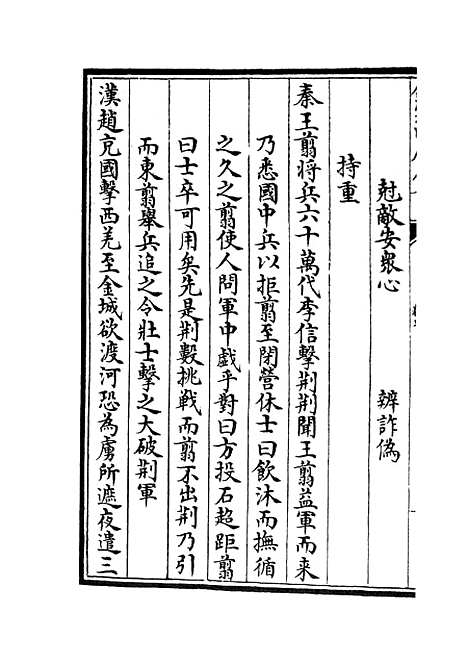 尅敵安衆心　辨詐偽
持重
秦王翦将兵六十萬代李信擊荆荆聞王翦益軍而来
乃悉國中兵以拒翦至閉營休士日飲沐而撫循
之久之翦使人問軍中戯乎對曰方投石超距翦
曰士卒可用矣先是荆數挑戦而翦不出荆乃引
而東翦舉兵追之令壯士擊之大破荆軍
漢趙充國擊西羌至金城欲渡河恐為虜所遮夜遣三